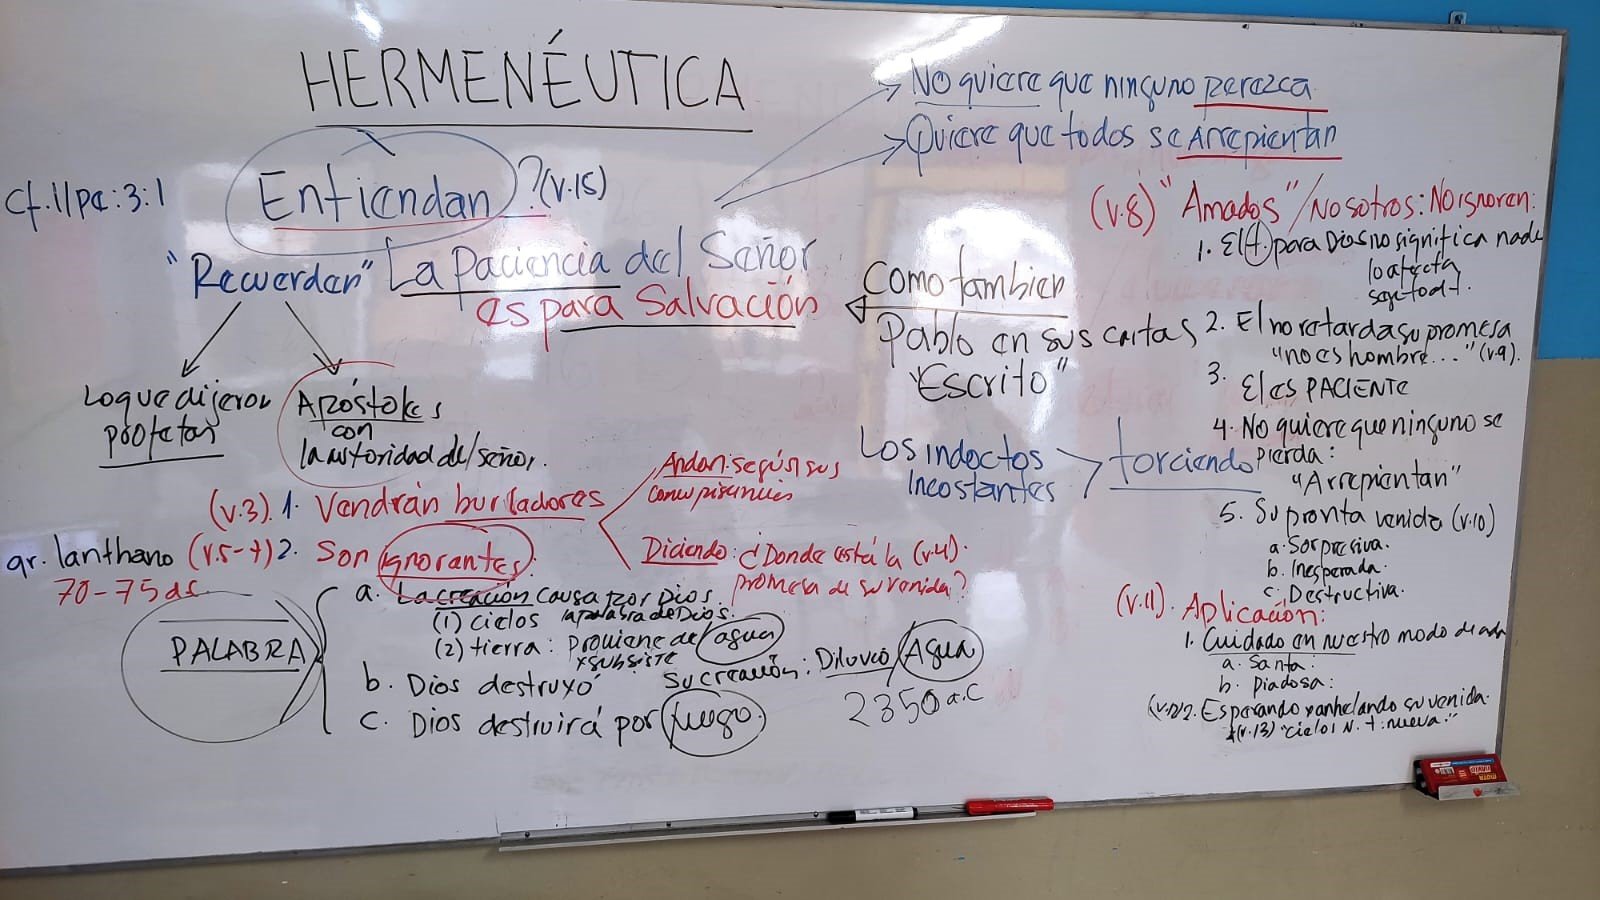 HERMENÉUTICA
No quiere que ninguno perezca
Quiere que todos se Arrepientan
Cf. II Pe: 3:1
Entiendan ? (v.15)
"Recuerden" La Paciencia del Señor
es para Salvación
Como tambien
Pablo en sus cartas
"Escrito"
Lo que dijeron
profetas
Apóstoles
con
la autoridad del señor.
Los indoctos
Incostantes
torciendo
(v.3). 1. Vendrán burladores
Andan: según sus
concupisencias
Diciendo: ¿Donde está la (v.4).
promesa de su venida?
gr. lanthano (v.5-7) 2. Son ignorantes:
70-75 d.
PALABRA
a. La creación causa por Dios.
(1) cielos la palabra de Dios.
(2) tierra: proviene de agua
y subsiste
b. Dios destruyó su creación: Diluvio/Agua
2350 a.C
c. Dios destruirá por fuego.
(v.8) "Amados" / Nosotros: No ignoren:
1. El t. para Dios no significa nada
lo afecta
2. El no retarda su promesa
"no es hombre..." (v.9).
3. El es PACIENTE
4. No quiere que ninguno se
pierda:
"Arrepientan"
5. Su pronta venida (v.10)
a. Sorpresiva.
b. Inesperada.
c. Destructiva.
(v.11). Aplicación:
1. Cuidado en nuestro modo de
a. Santa:
b. Piadosa:
2. Esperando y anhelando su venida.
(v.13) "cielos N. t. nueva."